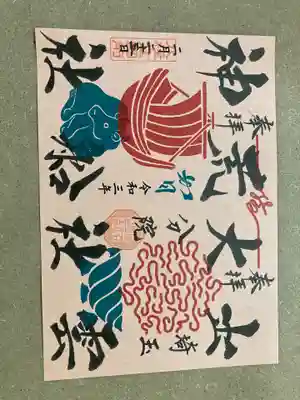 奉拝
荒船
神社
如月
令和三年
二月二十三日
奉拝
出雲
大社
埼玉
分院